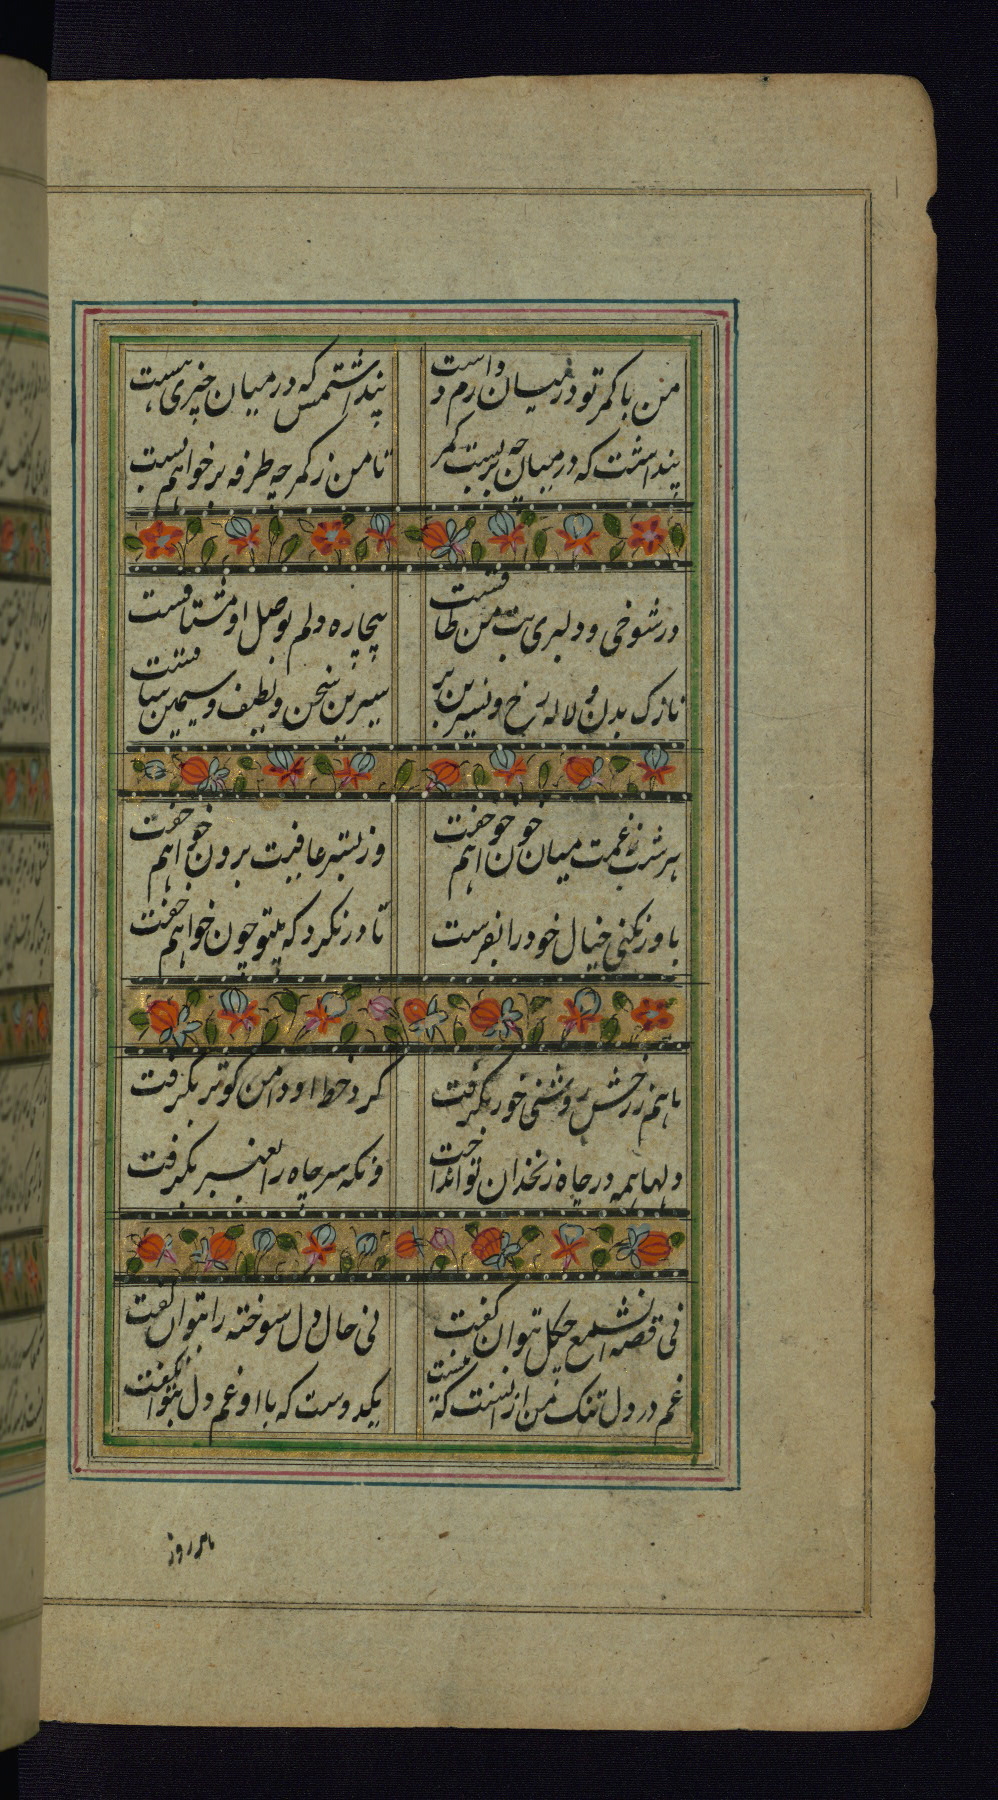 من با کمر تو در میان کردم دست
پنداشتمش که در میان چیزی هست
پیداست که در میان چه بربست کمر
تا من ز کمر چه طرفه بر خواهم بست
در شوخی و دلبری بت من طاقست
بیچاره دلم بوصل او مشتاقست
نازک بدن و لاله رخ و نسرین بر
شیرین سخن و لطیف و سیمین ساقست
هر شب ز غمت میان خون خواهم خفت
وز بستر عافیت برون خواهم خفت
باور نکنی خیال خود را بفرست
تا در نگرد که بیتو چون خواهم خفت
ماهم ز رخش روشنی خور بگرفت
گرد خط او دامن کوثر بگرفت
دلها همه در چاه زنخدان تو انداخت
وانکه سر چاه را بعنبر بگرفت
نی قصه آن شمع چگل بتوان گفت
نی حال دل سوخته را بتوان گفت
غم در دل تنک من از آنست که نیست
یکدوست که با او غم دل بتوان گفت